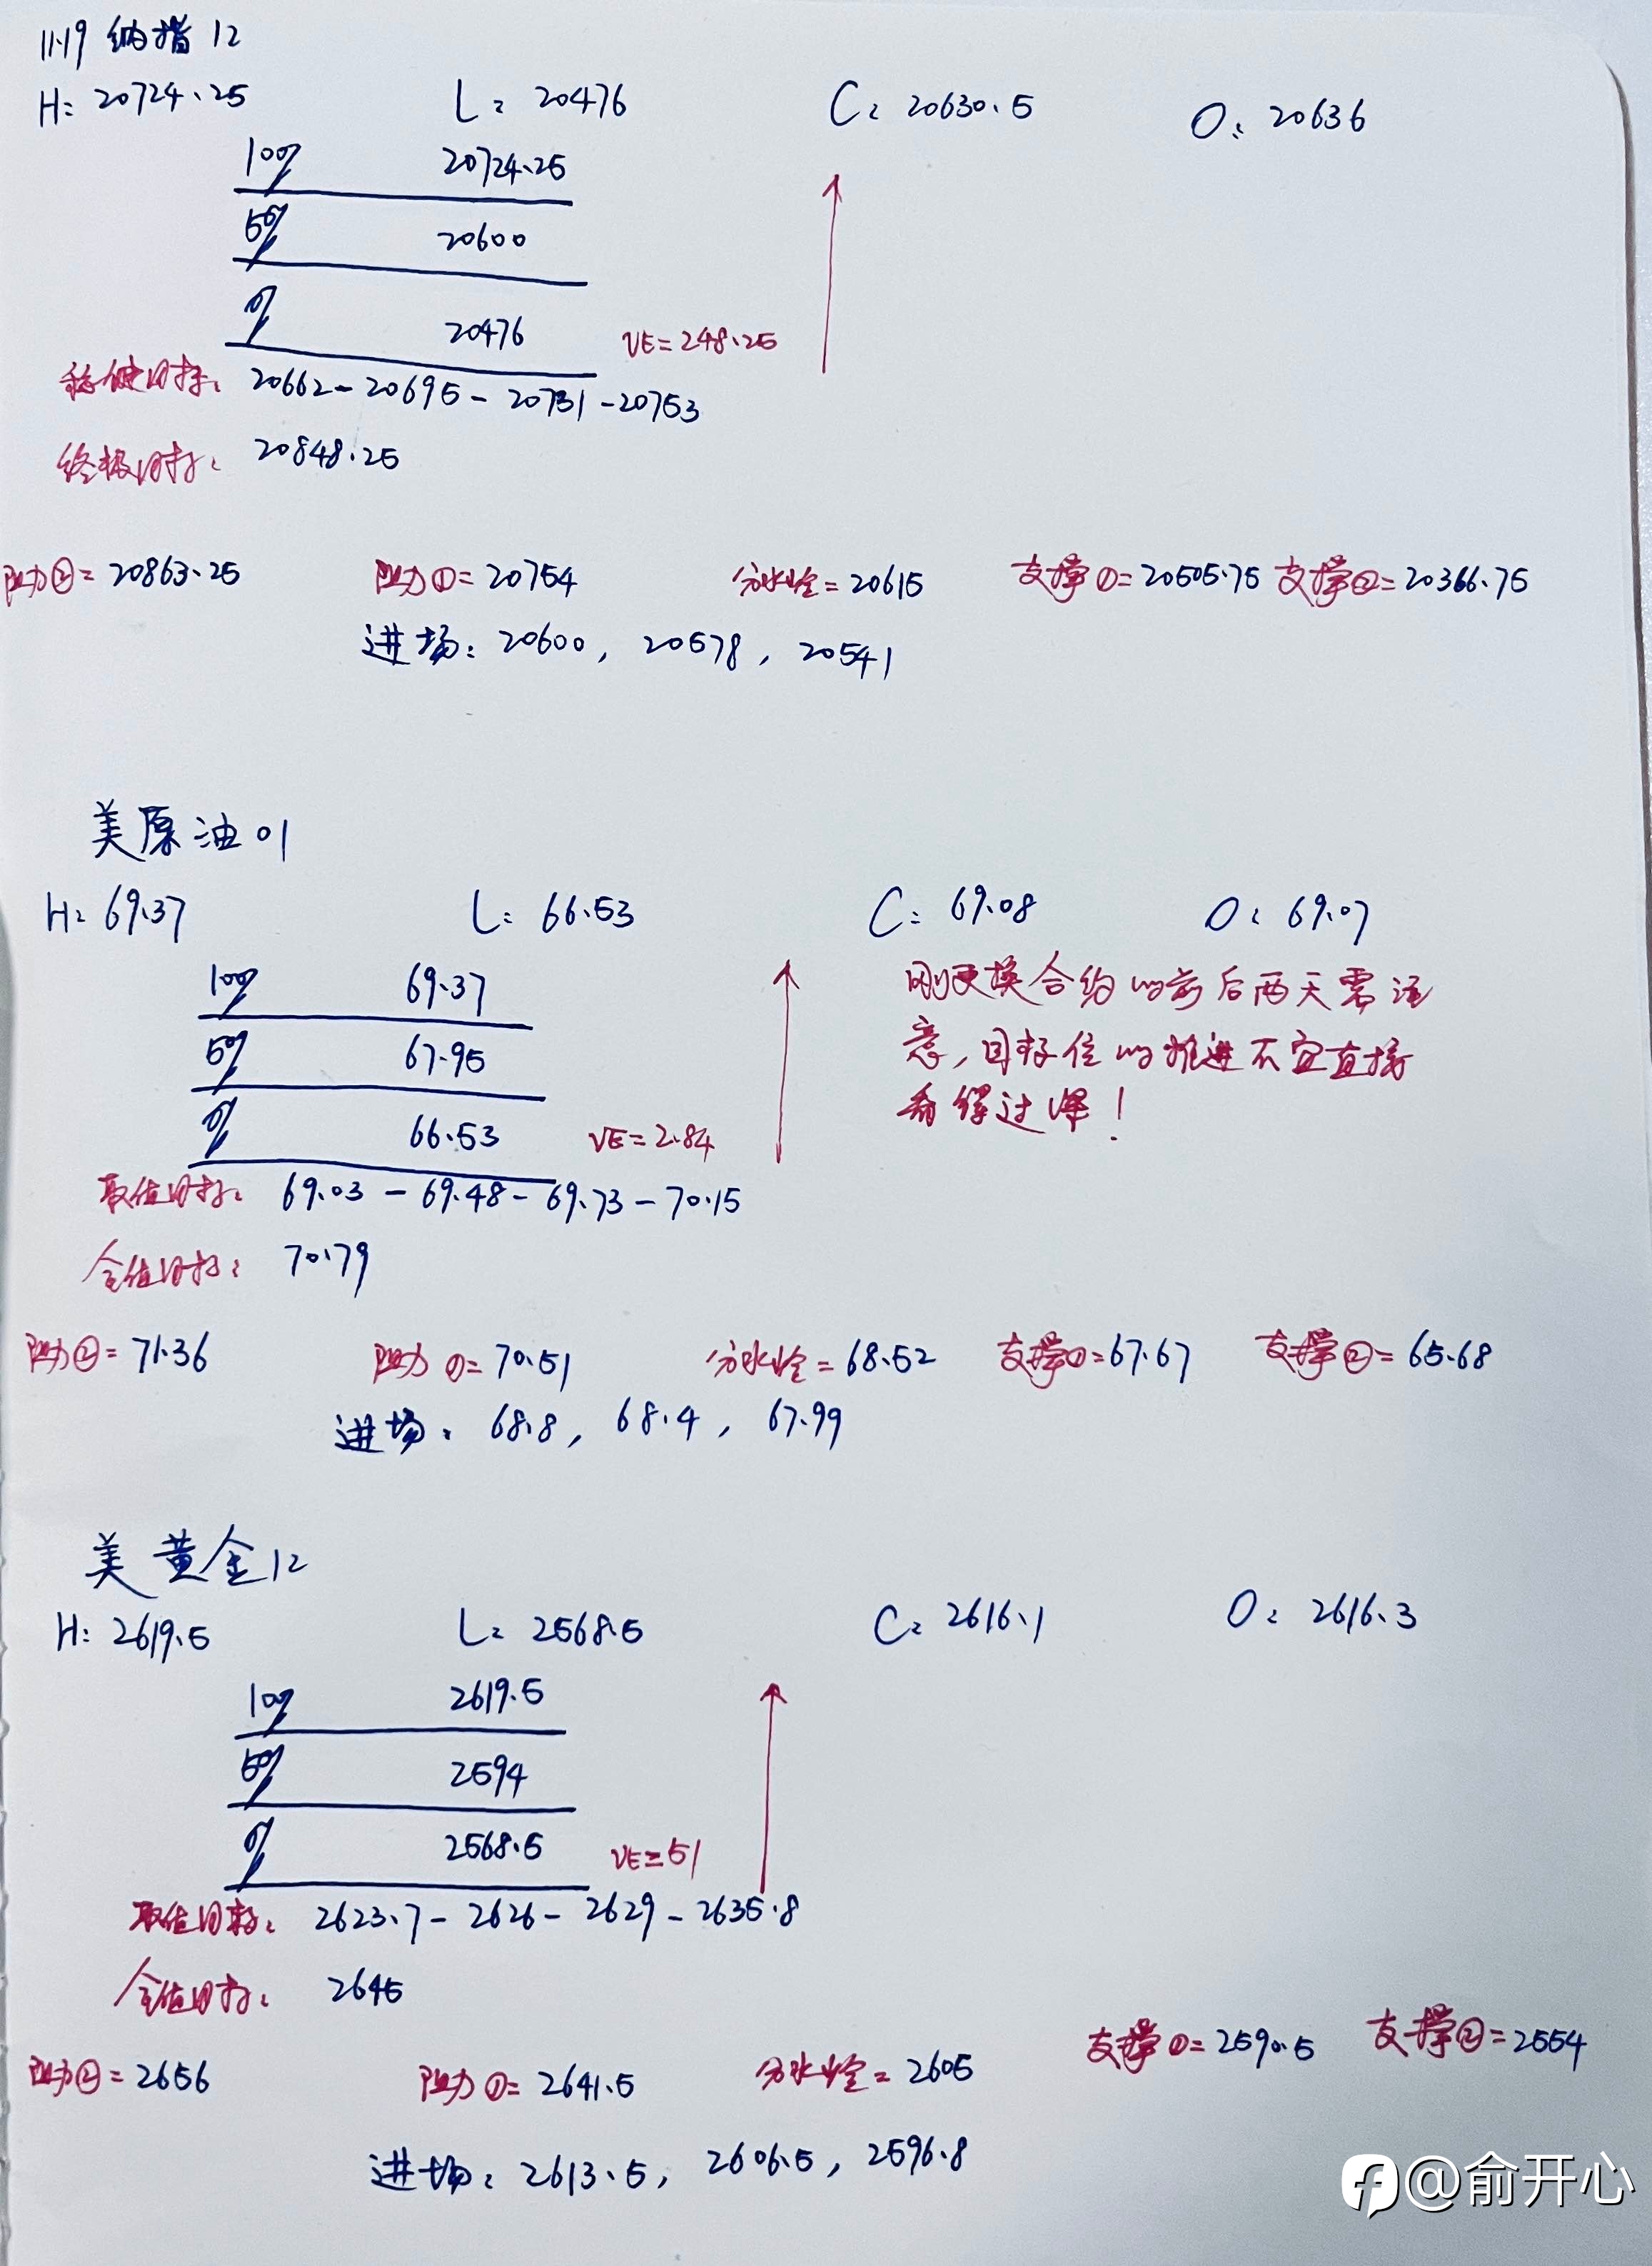 11.19 纳指12
H: 20724.25 L: 20476 C: 20630.5 O: 20636
100% 20724.25
50% 20600
0% 20476 VE=248.25
稳健目标: 20662-20695-20731-20753
终极目标: 20848.25
阻力②=20863.25 阻力①=20754 分水岭=20615 支撑①=20505.75 支撑②=20366.75
进场: 20600, 20578, 20541
美原油01
H: 69.37 L: 66.53 C: 69.08 O: 69.07
100% 69.37
50% 67.95
0% 66.53 VE=2.84
刚更换合约的前后两天需注
意,目标位的推进不宜直接
看得过深!
取值目标: 69.03-69.48-69.73-70.15
全值目标: 70.79
阻力②=71.36 阻力①=70.51 分水岭=68.52 支撑①=67.67 支撑②=65.68
进场: 68.8, 68.4, 67.99
美黄金12
H: 2619.5 L: 2568.5 C: 2616.1 O: 2616.3
100% 2619.5
50% 2594
0% 2568.5 VE=51
取值目标: 2623.7-2626-2629-2635.8
全值目标: 2645
阻力②=2656 阻力①=2641.5 分水岭=2605 支撑①=2590.5 支撑②=2554
进场: 2613.5, 2606.5, 2596.8
@俞开心